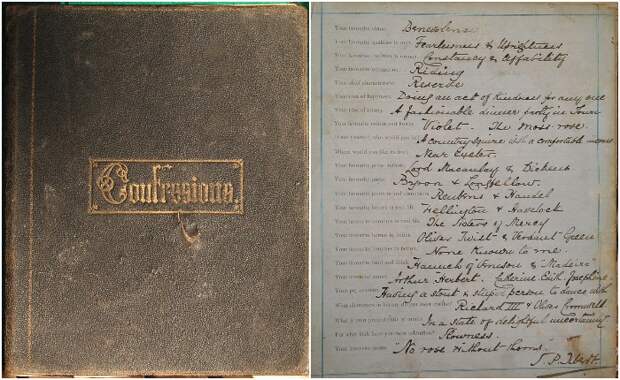 Confessions
Your favourite virtue. Benevolence
Your favourite qualities in man. Fearlessness & Uprightness
Your favourite qualities in woman. Constancy & Affability
Your favourite occupation. Riding
Your chief characteristic. Reserve
Your idea of happiness. Doing an act of Kindness for any one
Your idea of misery. A fashionable dinner party in Town
Your favourite colour and flower. Violet. The moss rose.
If not yourself, who would you be? A country squire with a comfortable income
Where would you like to live? Near Exeter.
Your favourite prose authors. Lord Macaulay & Dickens
Your favourite poets. Byron & Longfellow.
Your favourite painters and composers. Reubens & Handel
Your favourite heroes in real life. Wellington & Havelock
Your favourite heroines in real life. The Sisters of Mercy
Your favourite heroes in fiction. Oliver Twist & Verdant Green
Your favourite heroines in fiction. None Known to me.
Your favourite food and drink. Haunch of Venison & "Madeira"
Your favourite names. Arthur Herbert. Catherine Edith Josephine
Your pet aversion. Having a stout & stupid person to dance with
What characters in history do you most dislike? Richard III & Oliver Cromwell
What is your present state of mind? In a state of delightful uncertainty
For what fault have you most toleration? Slowness.
Your favourite motto. "No rose without thorns."